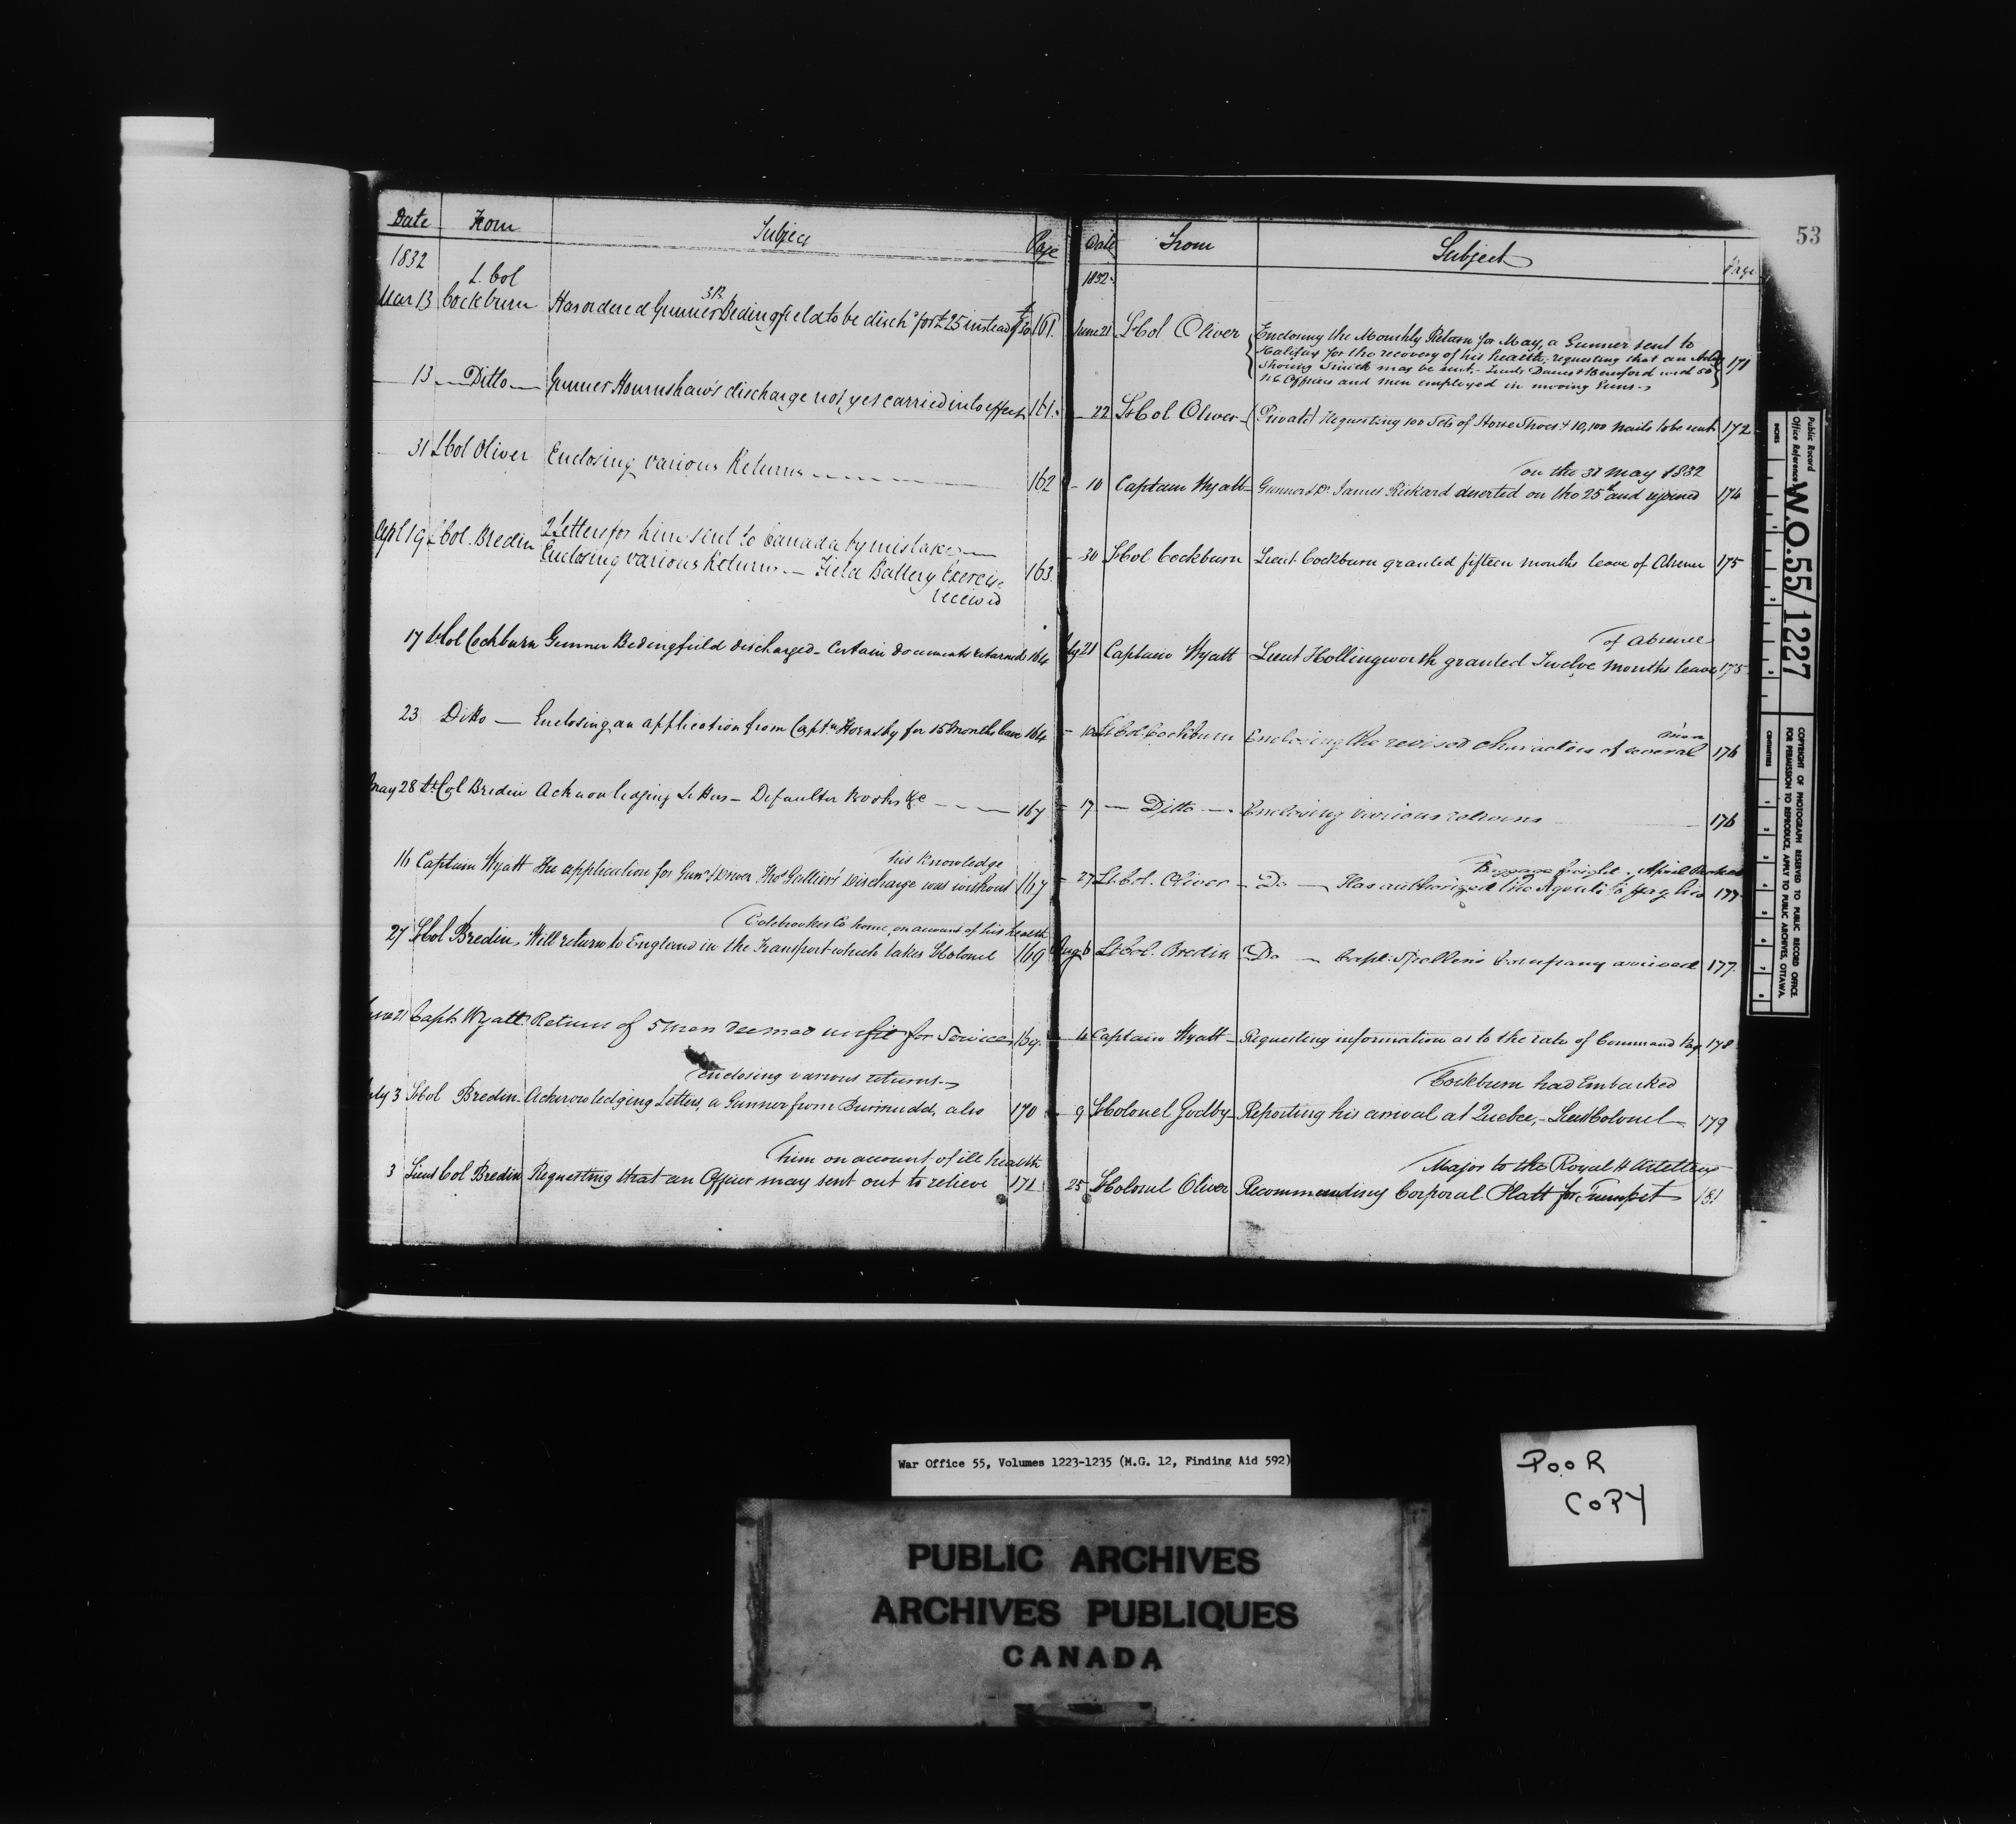 53
Date From Subject Page
1832
L. Col
Mar 13 Cockburn Has ordered Gunner Bedingfield to be disch^d for £25 instead of 161.
13 — Ditto — Gunner Hournshaw's discharge not yet carried into effect 161.
31 L Col Oliver Enclosing various Returns 162
Apl 19 L Col. Bredin 2 Letters for him sent to Canada by mistake —
Enclosing various Returns. — Field Battery Exercise 163
received
17 Lt Col Cockburn Gunner Bedingfield discharged - Certain documents returned 164
23 Ditto — Enclosing an application from Captn Hornsby for 15 Months leave 164
May 28 Lt Col Bredin Acknowledging Letters — Defaulter Books &c — 167
his knowledge
16 Captain Wyatt the application for Gunr & Driver Thos Gallier's discharge was without 167
Colebrooke's Co home, on account of his health
27 Lt Col Bredin, Will return to England in the Transport which takes Lt Colonel 169
June 21 Capt. Wyatt Return of 5 men deemed unfit for Service 169.
Enclosing various returns.
July 3 Lt Col Bredin Acknowledging Letters, a Gunner from Bermuda, also 170
him on account of ill health
3 Lieut Col Bredin Requesting that an Officer may sent out to relieve 171
Date From Subject Page
1832
June 21 Lt Col Oliver Enclosing the Monthly Return for May, a Gunner sent to
Halifax for the recovery of his health, requesting that an
Shoeing Smith may be sent, - Lieuts Davies & Beresford and 50
N C Officers and men employed in moving Guns 171
— 22 Lt Col Oliver (Private) Requesting 100 Sets of Horse Shoes & 10,100 nails to be sent 172
on the 31 May 1832
— 10 Captain Wyatt — Gunner & Dr. James Rickard deserted on the 25th and rejoined 174
— 30 Lt Col Cockburn Lieut. Cockburn granted fifteen months leave of Absence 175
of Absence
21 Captain Wyatt Lieut Hollingworth granted Twelve Months leave 175
men
— 10 Lt Col. Cockburn Enclosing the revised characters of several 176
— 17 — Ditto — Enclosing various returns 176
Baggage freight. April
— 27 Lt Col. Oliver — Do — Has authorized the Agents to pay his 177
Aug 6 Lt Col. Bredin — Do — Capt: Spellen's Company arrived 177.
— 4 Captain Wyatt — Requesting information as to the rate of Command Pay 178
Cockburn had Embarked
— 9 Lt Colonel Godby — Reporting his arrival at Quebec, — Lieut Colonel 179
Major to the Royal H Artillery
25 Lt Colonel Oliver Recommending Corporal Platt for Trumpet 181
Public Record Office Reference
W.O.55/1227
INCHES
CENTIMETRES
COPYRIGHT OF PHOTOGRAPH RESERVED TO PUBLIC RECORD OFFICE.
FOR PERMISSION TO REPRODUCE, APPLY TO PUBLIC ARCHIVES, OTTAWA.
War Office 55, Volumes 1223-1235 (M.G. 12, Finding Aid 592)
POOR
COPY
PUBLIC ARCHIVES
ARCHIVES PUBLIQUES
CANADA